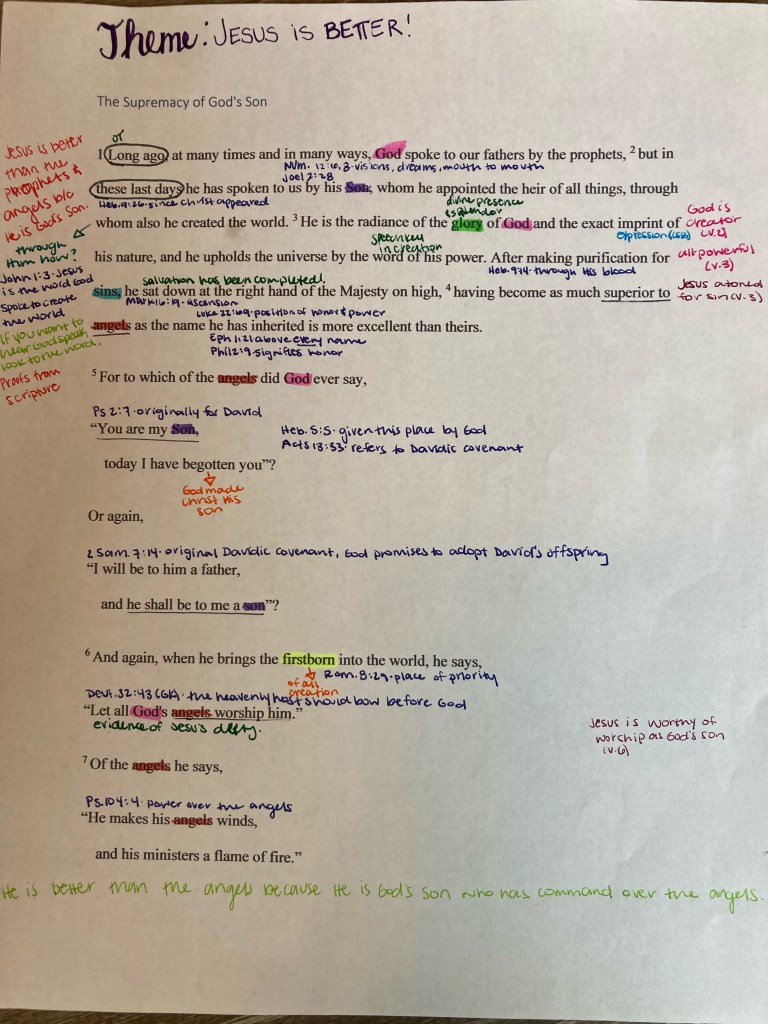 Theme: JESUS IS BETTER!
The Supremacy of God's Son
OT
1 Long ago, at many times and in many ways, God spoke to our fathers by the prophets, 2 but in
Num. 12:6, 8 · visions, dreams, mouth to mouth
Joel 2:28
these last days he has spoken to us by his Son, whom he appointed the heir of all things, through
Heb. 9:26 · since Christ appeared
divine presence
& splendor
whom also he created the world. 3 He is the radiance of the glory of God and the exact imprint of
expression (CSB)
speech key
in creation
his nature, and he upholds the universe by the word of his power. After making purification for
Heb. 9:14 · through His blood
salvation has been completed!
sins, he sat down at the right hand of the Majesty on high, 4 having become as much superior to
Mark 16:19 · Ascension
Luke 22:69 · position of honor & power
angels as the name he has inherited is more excellent than theirs.
Eph 1:21 above every name
Phil 2:9 · signifies honor
Jesus is better
than the
prophets &
angels b/c
He is God's Son.
through
Him how?
John 1:3 · Jesus
is the word God
spoke to create
the world
If you want to
hear God speak,
look to the word.
Proofs from
scripture
God is
creator
(v.2)
all powerful
(v.3)
Jesus atoned
for sin (v.3)
5 For to which of the angels did God ever say,
Ps 2:7 · originally for David
"You are my Son,
Heb. 5:5 · given this place by God
Acts 13:33 · refers to Davidic covenant
today I have begotten you"?
God made
Christ His
son
Or again,
2 Sam. 7:14 · original Davidic covenant, God promises to adopt David's offspring
"I will be to him a father,
and he shall be to me a son"?
6 And again, when he brings the firstborn into the world, he says,
Rom. 8:29 · place of priority
of all
creation
Deut. 32:43 (GK) · the heavenly host should bow before God
"Let all God's angels worship him."
evidence of Jesus's deity.
Jesus is worthy of
worship as God's son
(v.6)
7 Of the angels he says,
Ps. 104:4 · power over the angels
"He makes his angels winds,
and his ministers a flame of fire."
He is better than the angels because He is God's Son who has command over the angels.